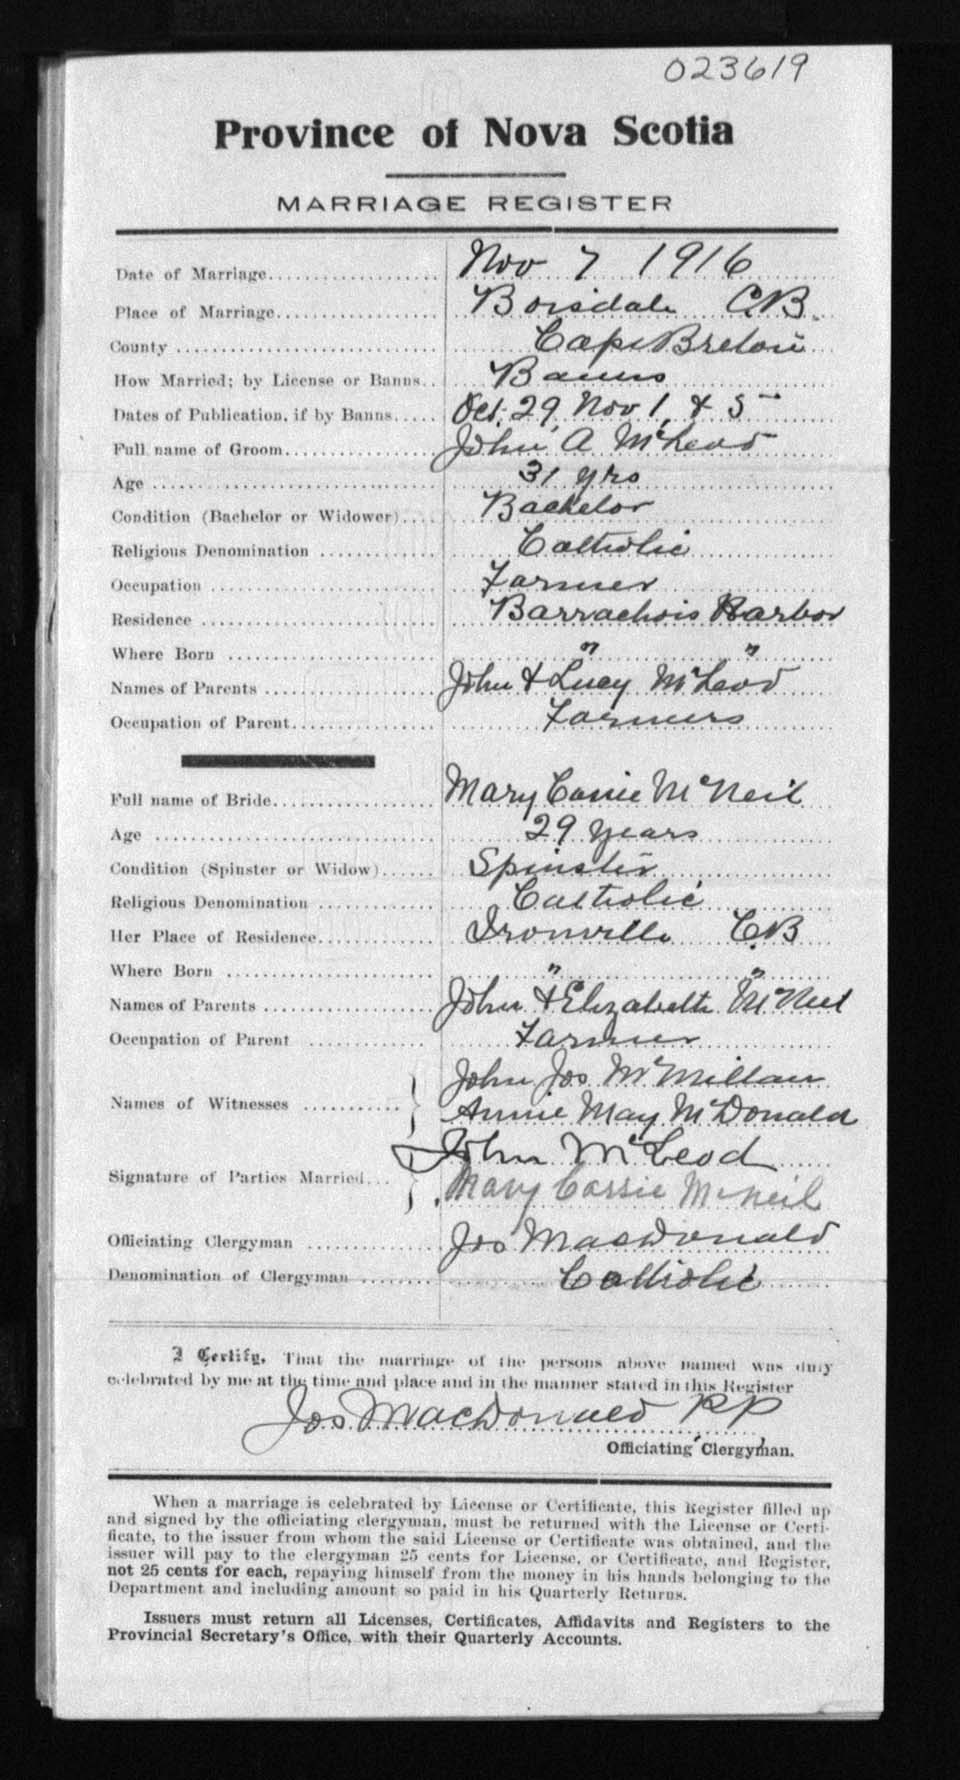 023619
Province of Nova Scotia
MARRIAGE REGISTER
Date of Marriage.................... Nov 7 1916
Place of Marriage.................. Boisdale C.B.
County ............................. Cape Breton
How Married; by License or Banns.. Banns
Dates of Publication, if by Banns..... Oct. 29, Nov 1, & 5
Full name of Groom................. John A McLeod
Age ................................ 31 yrs
Condition (Bachelor or Widower).... Bachelor
Religious Denomination ............. Catholic
Occupation ......................... Farmer
Residence .......................... Barrachois Harbor
Where Born ........................ " "
Names of Parents ................... John & Lucy McLeod
Occupation of Parent................ Farmers
Full name of Bride.................. Mary Cassie McNeil
Age ................................ 29 years
Condition (Spinster or Widow)...... Spinster
Religious Denomination ............. Catholic
Her Place of Residence.............. Ironville C.B
Where Born ........................ " "
Names of Parents ................... John & Elizabeth McNeil
Occupation of Parent ............. Farmer
John Jos McMillan
Names of Witnesses ........... } Annie May McDonald
John McLeod
Signature of Parties Married... } Mary Cassie McNeil
Officiating Clergyman .............. Jos MacDonald
Denomination of Clergyman ........ Catholic
I Certify, That the marriage of the persons above named was duly
celebrated by me at the time and place and in the manner stated in this Register
Jos MacDonald P.P.
Officiating Clergyman.
When a marriage is celebrated by License or Certificate, this Register filled up
and signed by the officiating clergyman, must be returned with the License or Certi-
ficate, to the issuer from whom the said License or Certificate was obtained, and the
issuer will pay to the clergyman 25 cents for License, or Certificate, and Register,
not 25 cents for each, repaying himself from the money in his hands belonging to the
Department and including amount so paid in his Quarterly Returns.
Issuers must return all Licenses, Certificates, Affidavits and Registers to the
Provincial Secretary's Office, with their Quarterly Accounts.